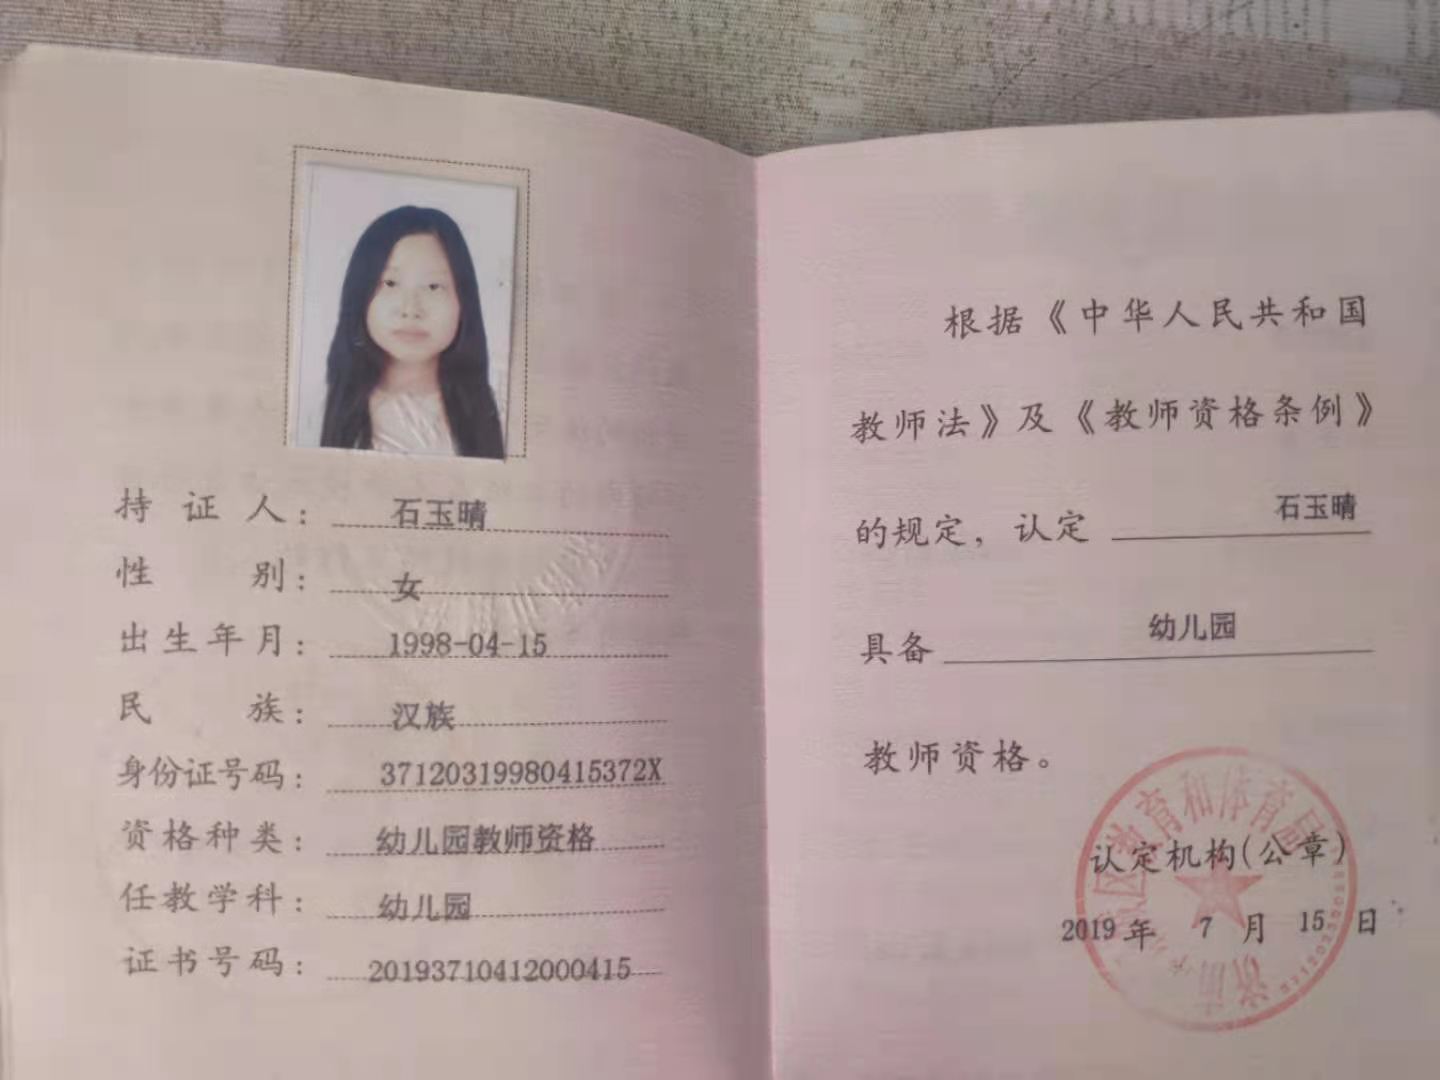 持证人：石玉晴
性别：女
出生年月：1998-04-15
民族：汉族
身份证号码：37120319980415372X
资格种类：幼儿园教师资格
任教学科：幼儿园
证书号码：20193710412000415
根据《中华人民共和国
教师法》及《教师资格条例》
的规定，认定 石玉晴
具备 幼儿园
教师资格。
认定机构(公章)
2019年 7 月 15 日
济南 区教育和体育局